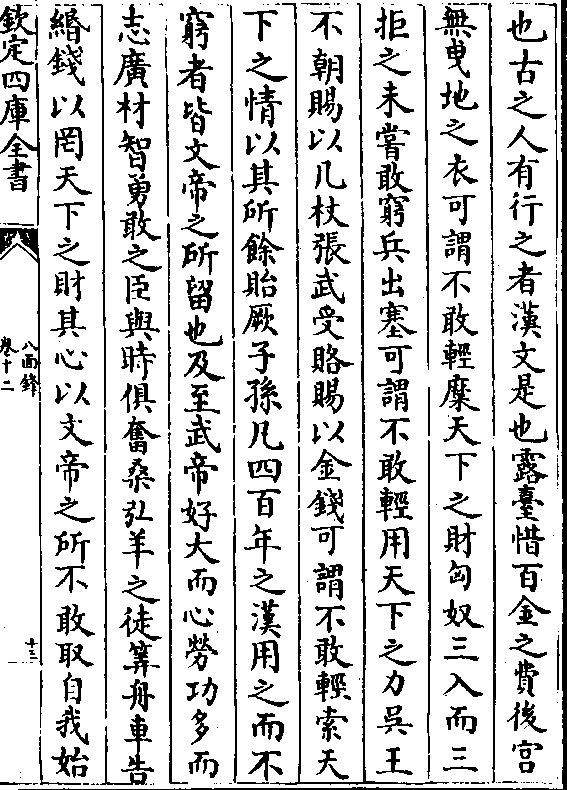 也古之人有行之者漢文是也露臺惜百金之費後宫
無曵地之衣可謂不敢輕糜天下之財匈奴三入而三
拒之未嘗敢窮兵出塞可謂不敢輕用天下之力吳王
不朝賜以几杖張武受賂賜以金錢可謂不敢輕索天
下之情以其所餘貽厥子孫凡四百年之漢用之而不
窮者皆文帝之所留也及至武帝好大而心勞功多而
志廣材智勇敢之臣與時俱奮桑弘羊之徒筭舟車告
緡錢以罔天下之財其心以文帝之所不敢取自我始
欽定四庫全書
八面鋒
卷十二
十三